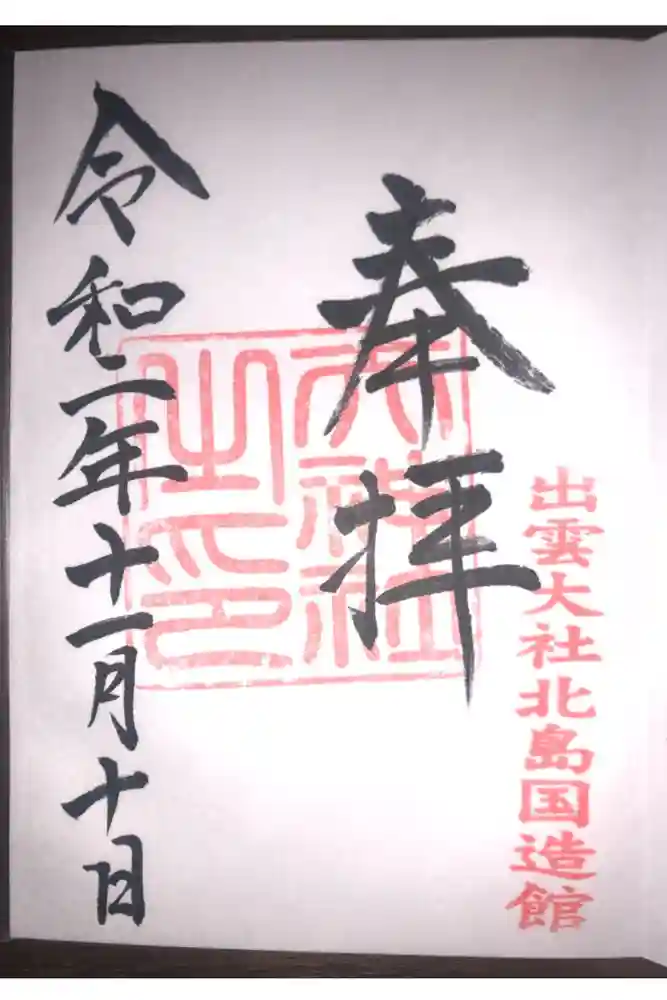 出雲大社北島国造館
奉拝
大社
之印
令和二年十一月十日